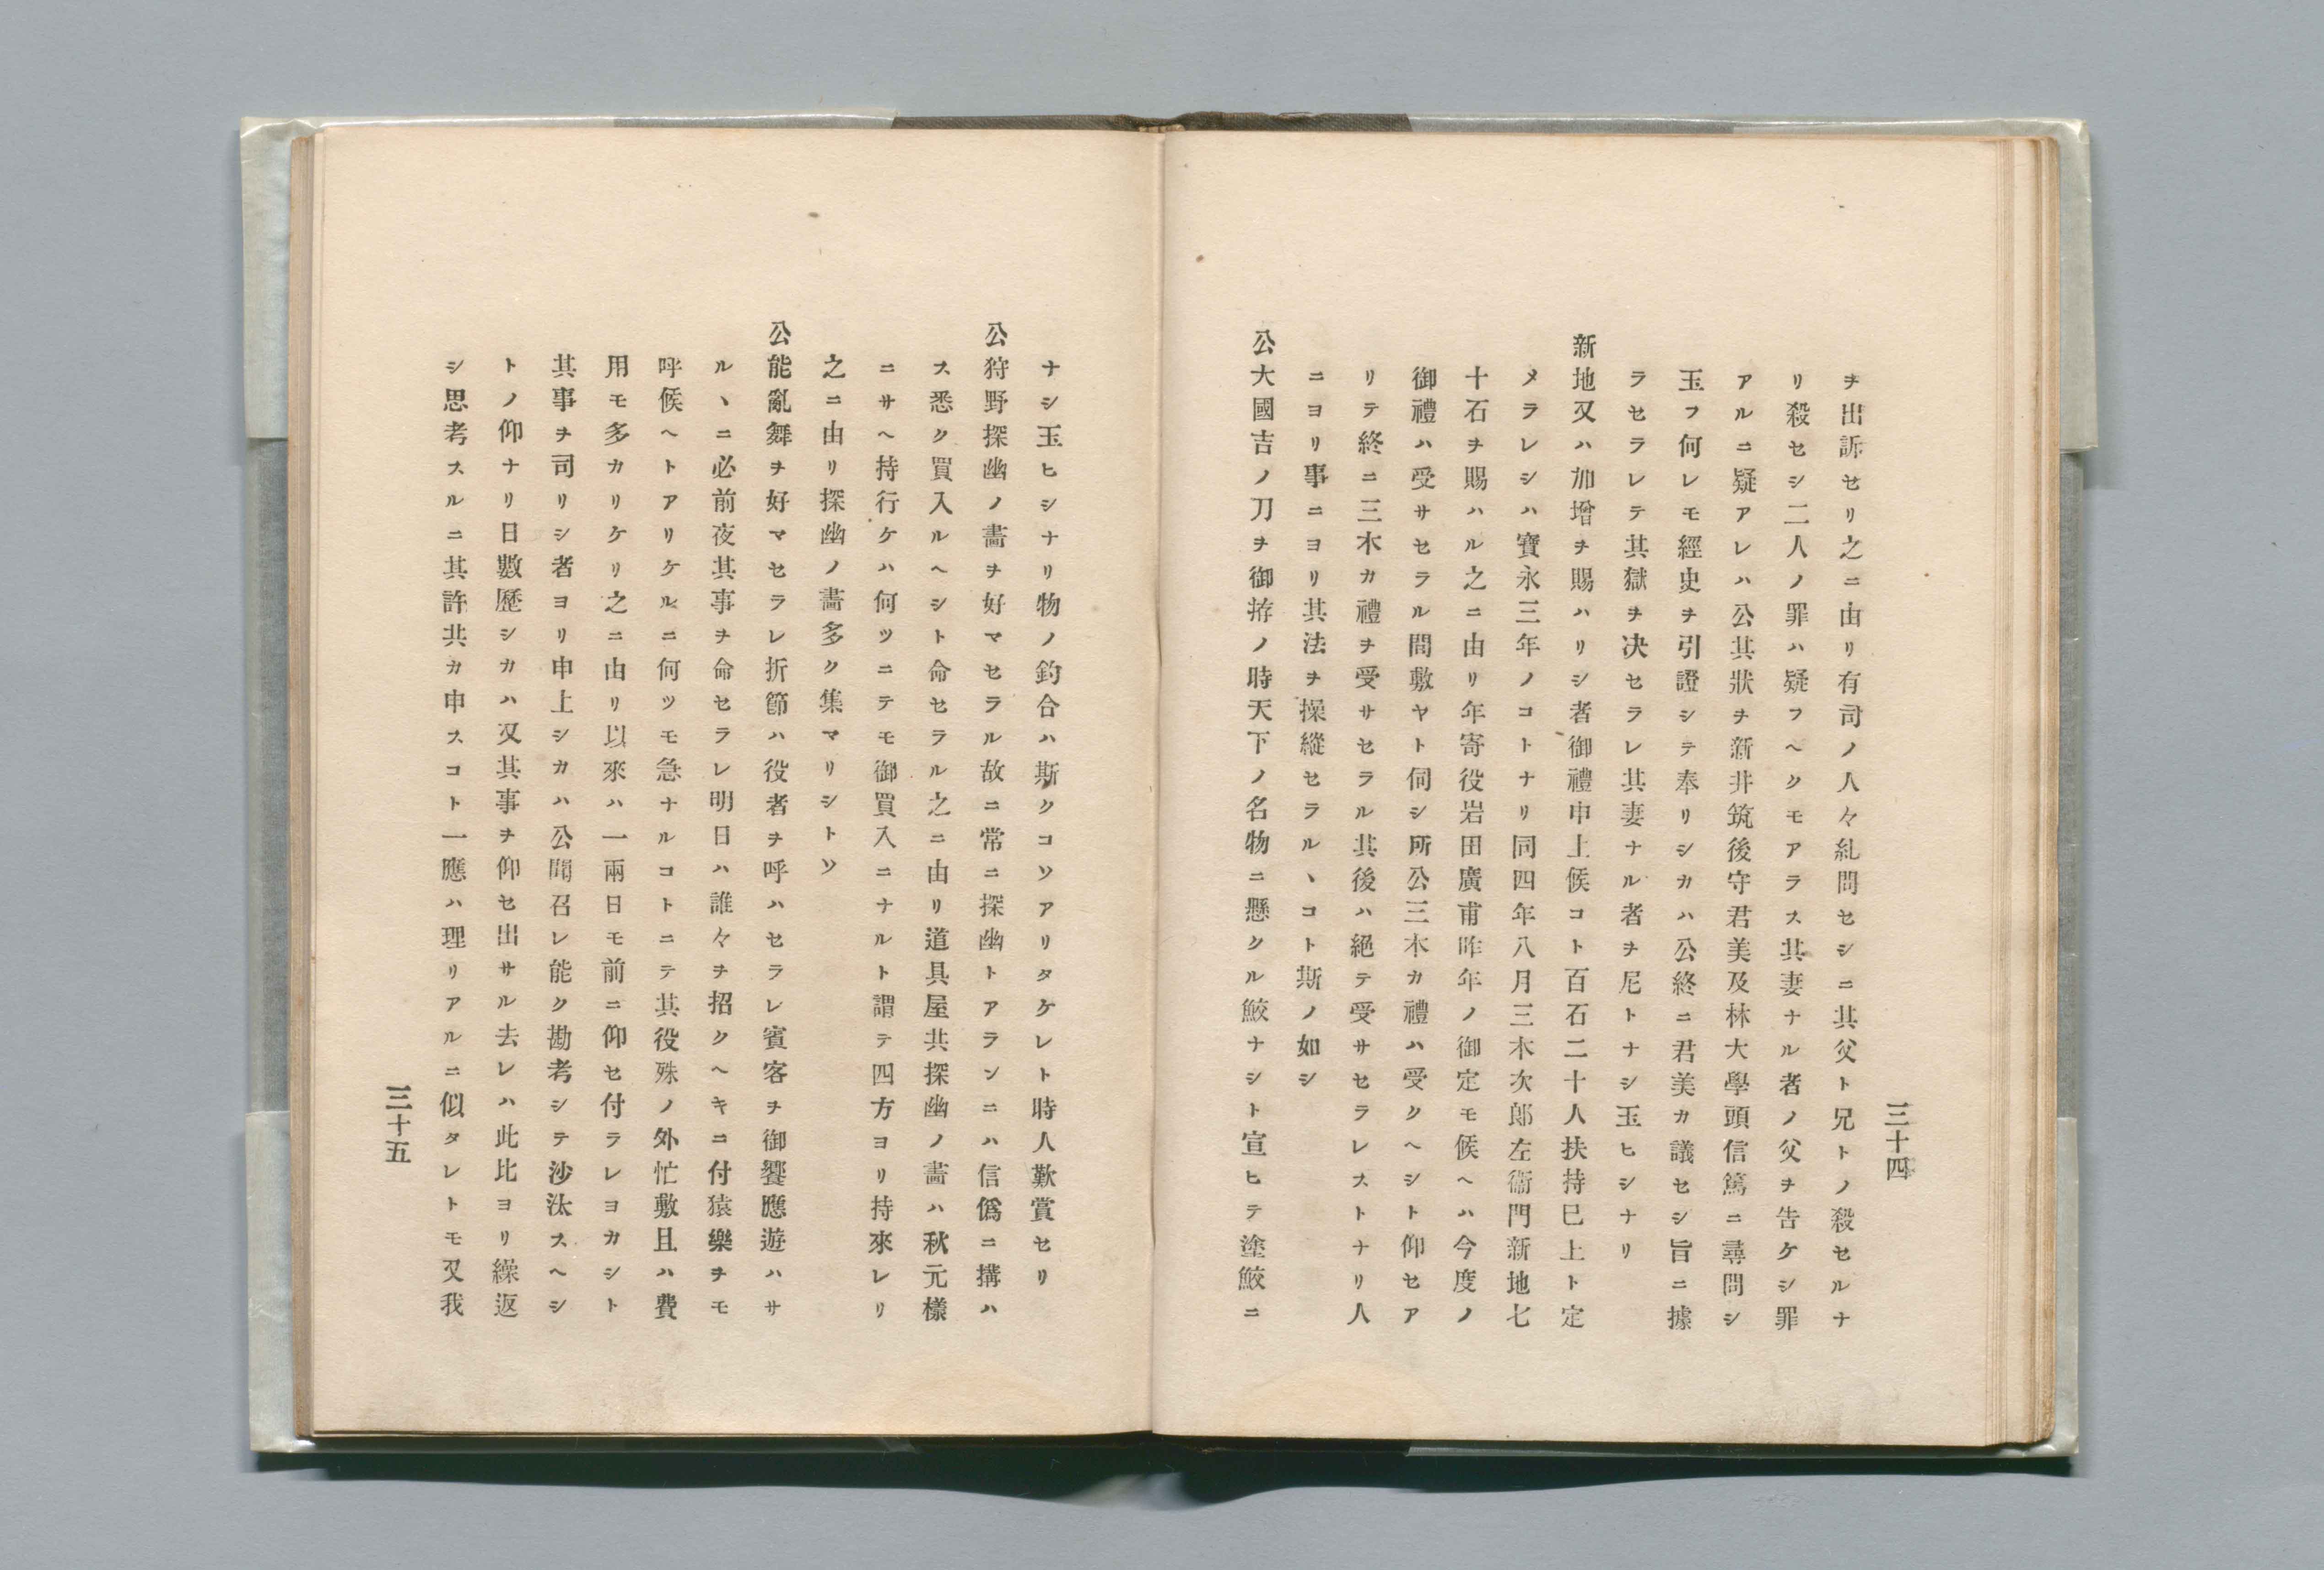 三十四
ヲ出訴セリ之ニ由リ有司ノ人々糺問セシニ其父ト兄トノ殺セルナ
リ殺セシ二人ノ罪ハ疑フヘクモアラス其妻ナル者ノ父ヲ告ケシ罪
アルニ疑アレハ公其狀ヲ新井筑後守君美及林大學頭信篤ニ尋問シ
玉フ何レモ經史ヲ引證シテ奉リシカハ公終ニ君美カ議セシ旨ニ據
ラセラレテ其獄ヲ決セラレ其妻ナル者ヲ尼トナシ玉ヒシナリ
新地又ハ加增ヲ賜ハリシ者御禮申上候コト百石二十人扶持已上ト定
メラレシハ寶永三年ノコトナリ同四年八月三木次郎左衞門新地七
十石ヲ賜ハル之ニ由リ年寄役岩田廣甫昨年ノ御定モ候ヘハ今度ノ
御禮ハ受サセラル間敷ヤト伺シ所公三木カ禮ハ受クヘシト仰セア
リテ終ニ三木カ禮ヲ受サセラル其後ハ絕テ受サセラレストナリ人
ニヨリ事ニヨリ其法ヲ操縱セラルヽコト斯ノ如シ
公大國吉ノ刀ヲ御拵ノ時天下ノ名物ニ懸クル鮫ナシト宣ヒテ塗鮫ニ
ナシ玉ヒシナリ物ノ釣合ハ斯クコソアリタケレト時人歎賞セリ
公狩野探幽ノ畵ヲ好マセラル故ニ常ニ探幽トアランニハ信僞ニ搆ハ
ス悉ク買入ルヘシト命セラル之ニ由リ道具屋共探幽ノ畵ハ秋元樣
ニサヘ持行ケハ何ツニテモ御買入ニナルト謂テ四方ヨリ持來レリ
之ニ由リ探幽ノ畵多ク集マリシトソ
公能亂舞ヲ好マセラレ折節ハ役者ヲ呼ハセラレ賓客ヲ御饗應遊ハサ
ルヽニ必前夜其事ヲ命セラレ明日ハ誰々ヲ招クヘキニ付猿樂ヲモ
呼候ヘトアリケルニ何ツモ急ナルコトニテ其役殊ノ外忙敷且ハ費
用モ多カリケリ之ニ由リ以來ハ一兩日モ前ニ仰セ付ラレヨカシト
其事ヲ司リシ者ヨリ申上シカハ公聞召レ能ク勘考シテ沙汰スヘシ
トノ仰ナリ日數歷シカハ又其事ヲ仰セ出サル去レハ此比ヨリ繰返
シ思考スルニ其許共カ申スコト一應ハ理リアルニ似タレトモ又我
三十五